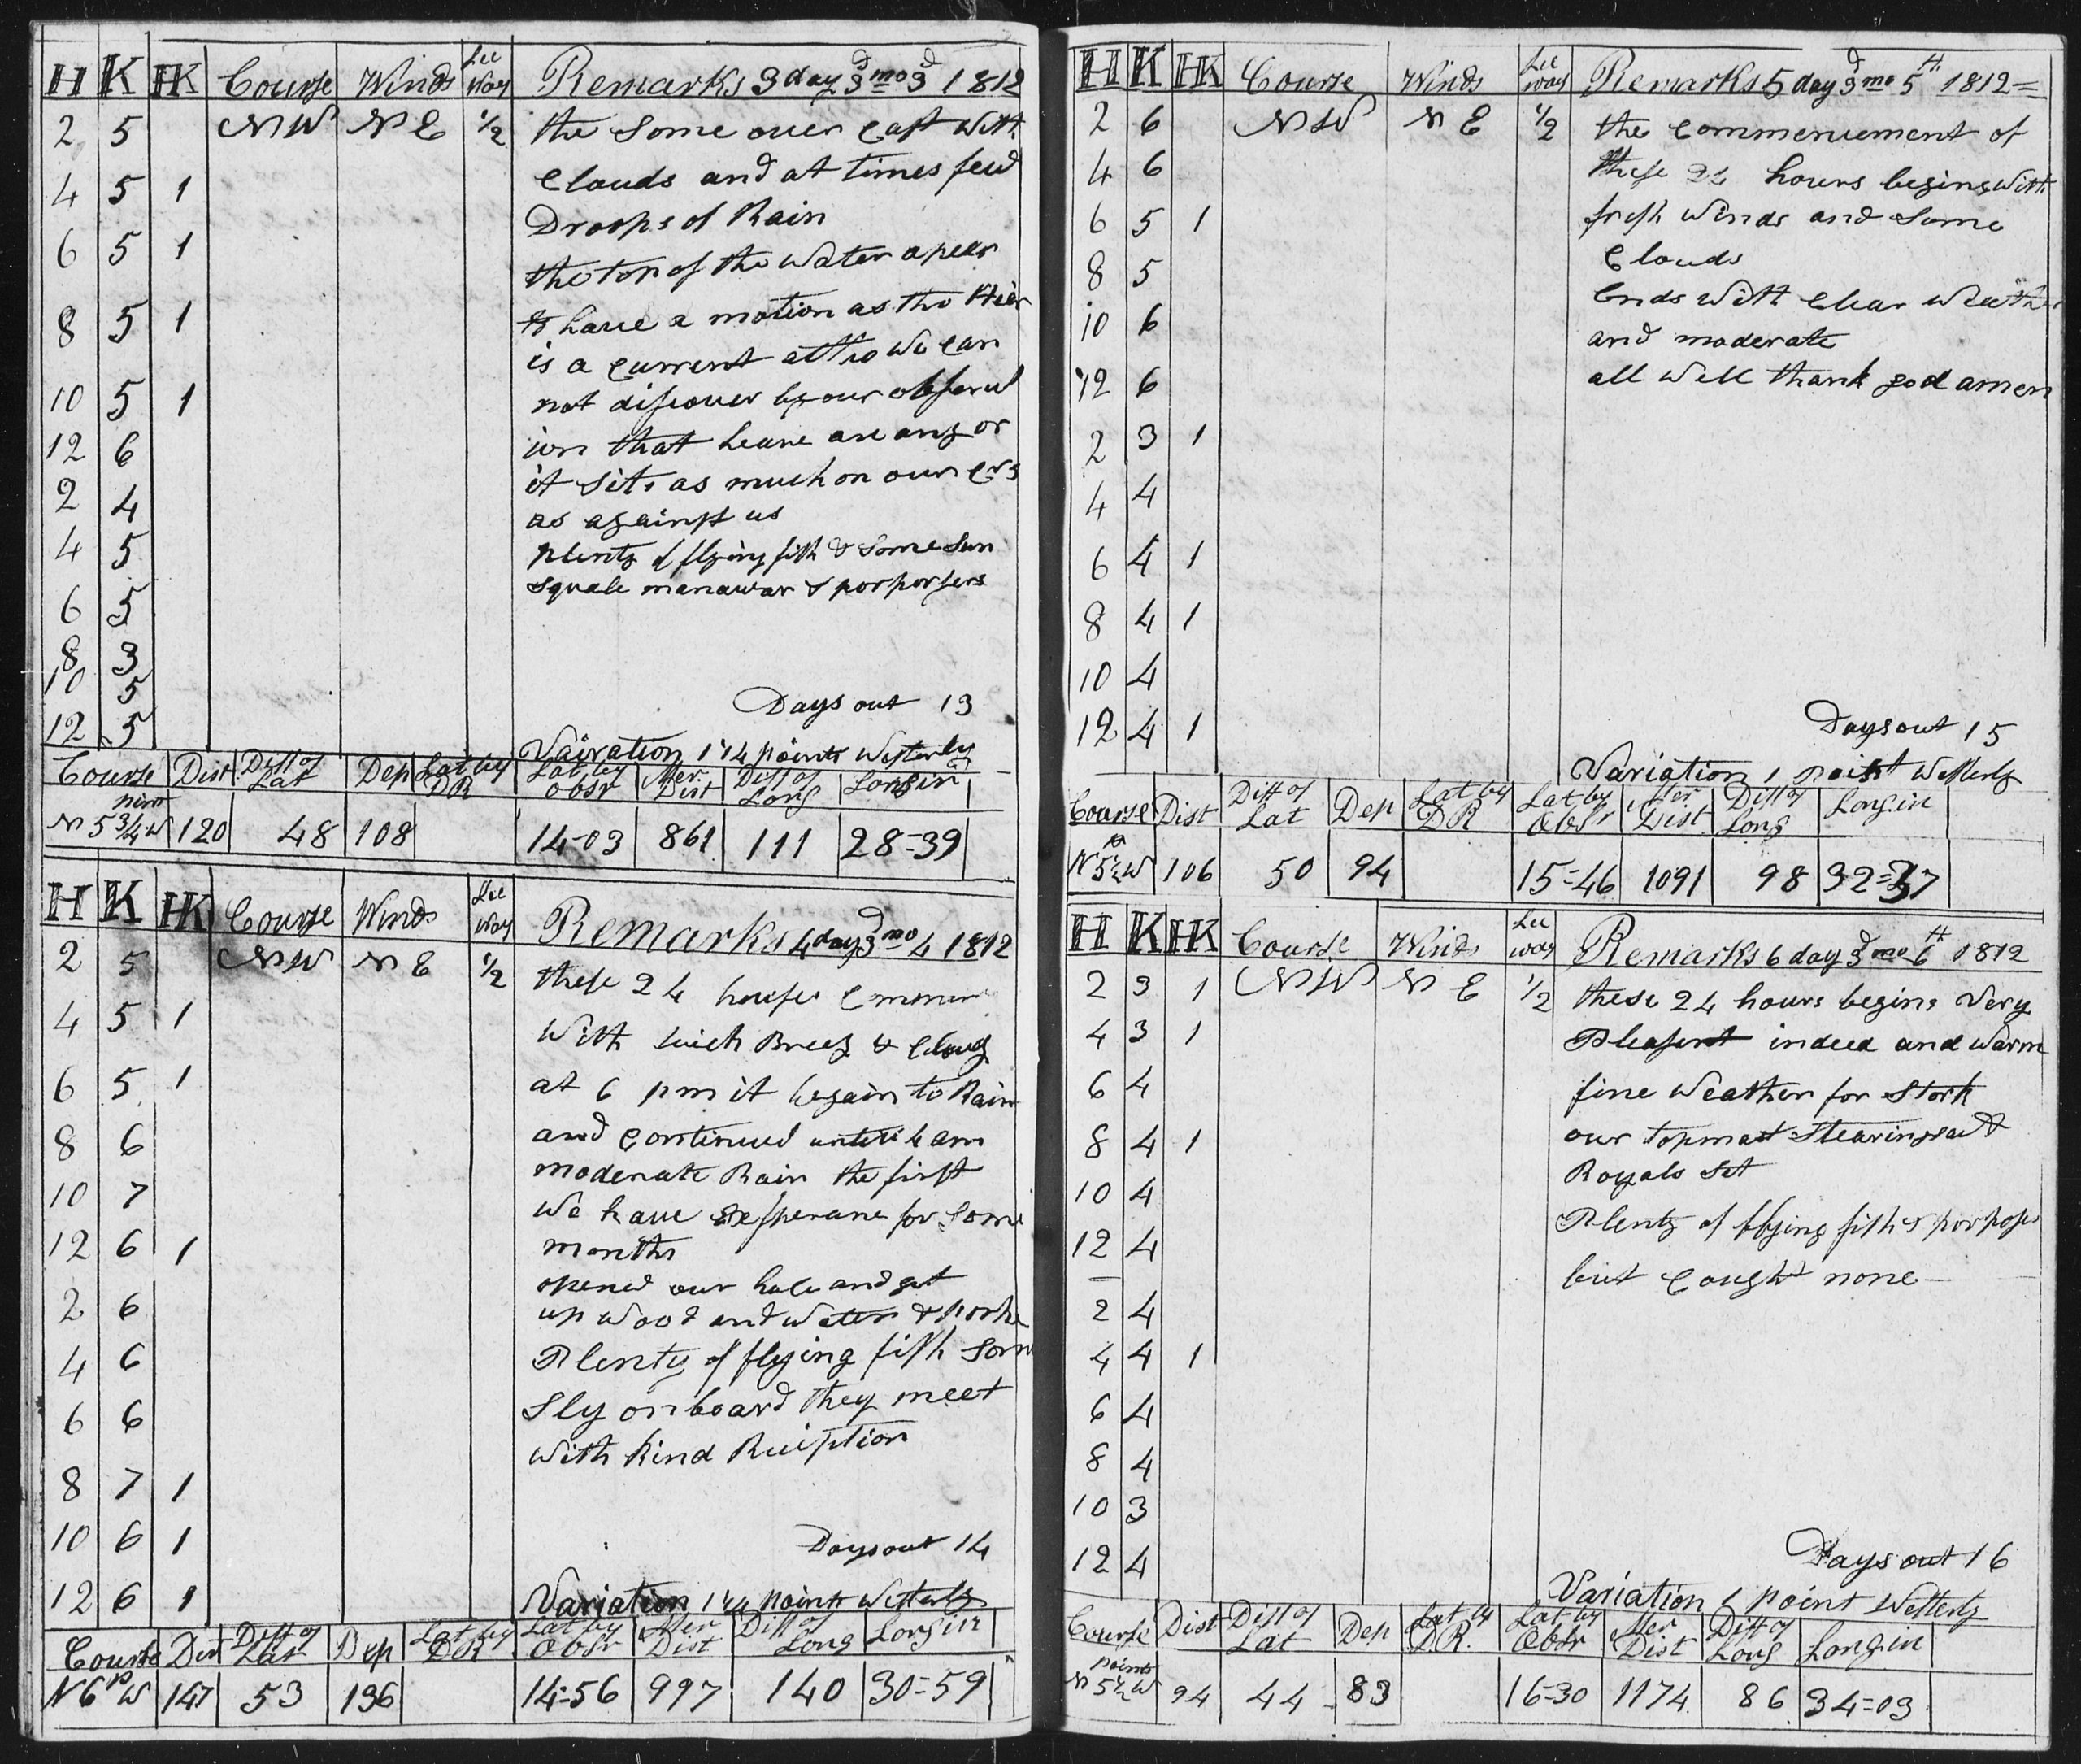 H K HK Course Winds Lee Way Remarks 3 day 3d mo 3d 1812
2 5 NW NE 1/2 the Some over Cast With
Clouds and at times few
4 5 1
Droops of Rain
6 5 1
the top of the Water apear
to have a motion as tho thier
8 5 1
is a Current altho We Can
10 5 1
not discover by our observt
ion that heave are any or
12 6
it Sits as much on our
2 4
as against us
4 5
Plenty of flying fish & Some Sun
Squale manawar & porporsers
6 5
8 3
10 5
Days out 13
12 5
Vairation 1 1/4 points Westerly
Course Dist Diff of Lat Dep Lat by DR Lat by obsr Mer Dist Diff of Long Long in
N 5 3/4 W 120 48 108 14-03 861 111 28=39
H K HK Course Winds Lee Way Remarks 4 day 3d mo 4 1812
2 5 NW NE 1/2 these 24 houses Commen
4 5 1
With such Breez & Cloug
6 5 1
at 6 pm it begain to Rain
8 6
and Continued untill 4 am
moderate Rain the first
10 7
We have for Some
12 6 1
months
opened our hole and got
2 6
up Wood and Water & porke
4 6
Plenty of flying fish Som
Sly on board they meet
6 6
With Kind Reciption
8 7 1
10 6 1
Days out 14
12 6 1
Variation 1 1/4 points Westerly
Course Dist Diff of Lat Dep Lat by DR Lat by Obsr Mer Dist Diff of Long Long in
N 6 p W 147 53 136 14=56 997 140 30=59
H K HK Course Winds Lee way Remarks 5 day 3d mo 5th 1812=
2 6 NW NE 1/2 the Commencement of
4 6
these 24 hours begins With
6 5 1
fresh Winds and Some
8 5
Clouds
Ends With Clear Weather
10 6
and moderate
12 6
all Well thank god amen
2 3 1
4 4
6 4 1
8 4 1
10 4
12 4 1
Days out 15
Variation 1 point Westerly
Course Dist Diff of Lat Dep Lat by DR Lat by Obsr Mer Dist Diff of Long Long in
N 5 1/2 W 106 50 94 15=46 1091 98 32=37
H K HK Course Winds Lee way Remarks 6 day 3d mo 6th 1812
2 3 1 NW NE 1/2 these 24 hours begins Very
4 3 1
Pleasent indeed and Warm
6 4
fine Weather for Stork
8 4 1
our topmast Stearingsail &
Royals Set
10 4
Plenty of flying fish & porposes
12 4
but Cought none
2 4
4 4 1
6 4
8 4
10 3
12 4
Days out 16
Variation 1 point Westerly
Course Dist Diff of Lat Dep Lat by DR. Lat by Obsr Mer Dist Diff of Long Long in
points
N 5 1/2 W 94 44 83 16=30 1174 86 34=03